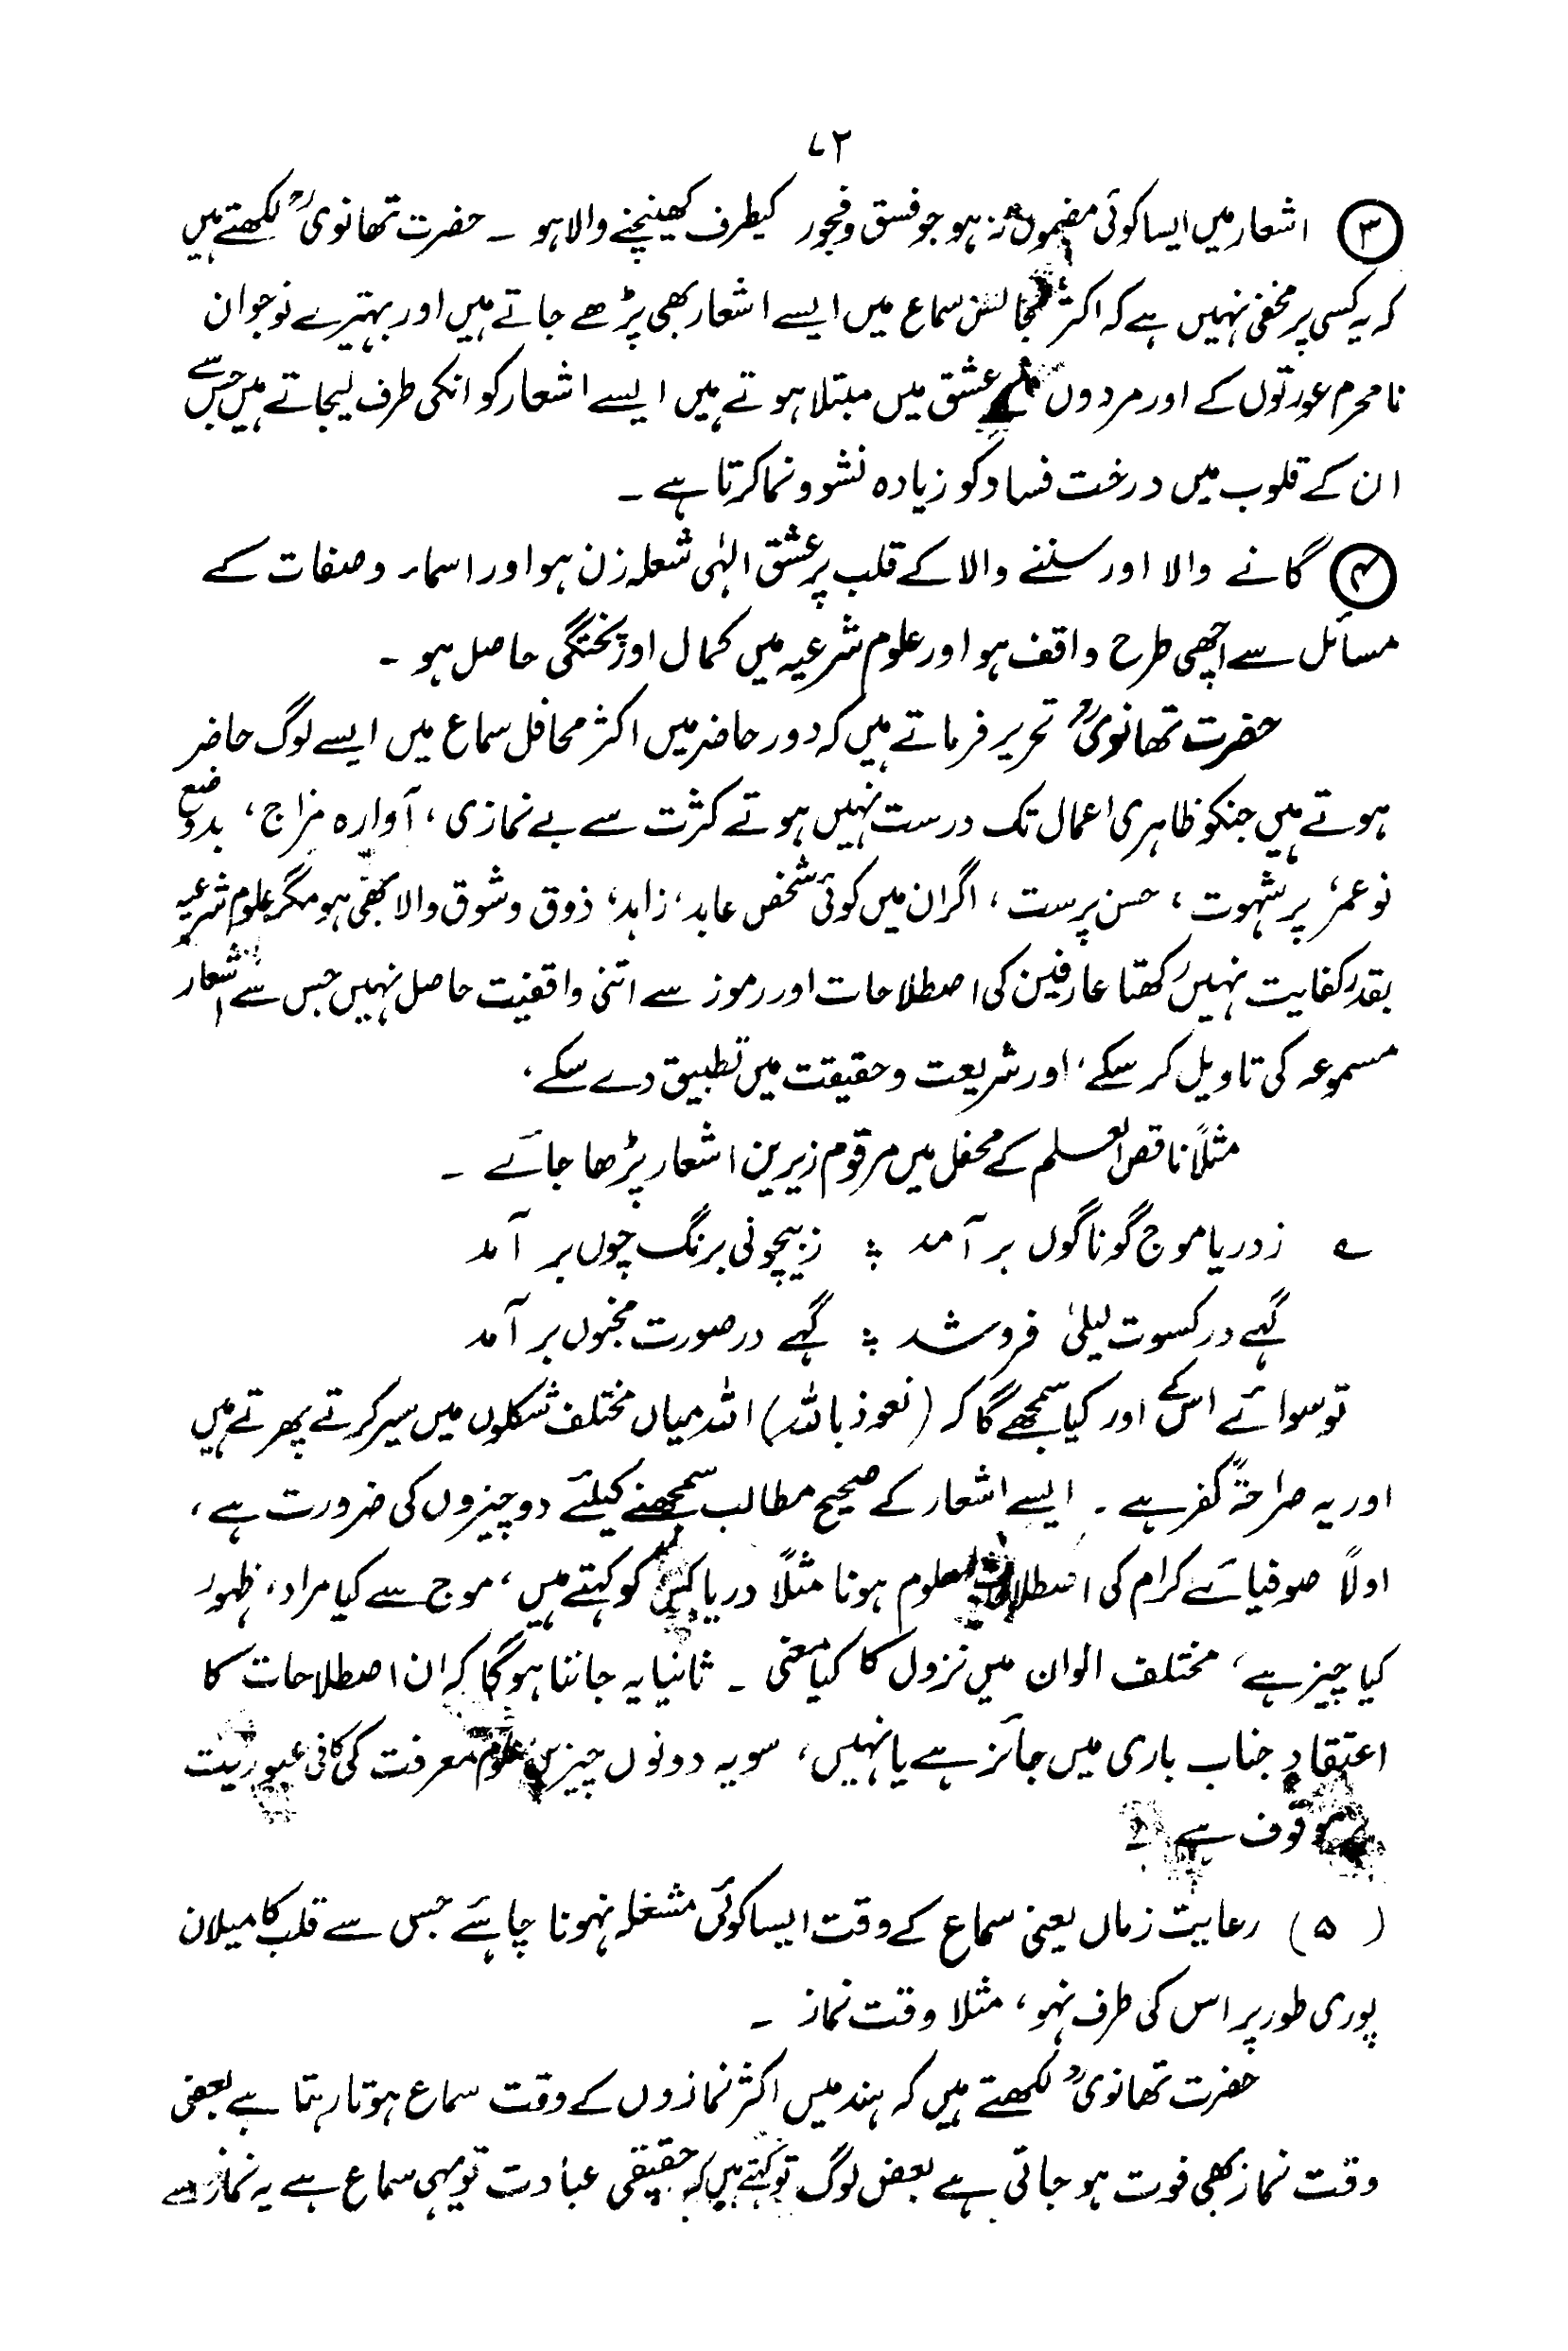 ۷۲
③ اشعار میں ایسا کوئی مضمون نہ ہو جو فسق وفجور کیطرف کھینچنے والا ہو ۔ حضرت تھانویؒ لکھتے ہیں
کہ یہ کسی پر مخفی نہیں ہے کہ اکثر مجالس سماع میں ایسے اشعار بھی پڑھے جاتے ہیں اور بہتیرے نوجوان
نامحرم عورتوں کے اور مردوں کے عشق میں مبتلا ہوتے ہیں ایسے اشعار کو انکی طرف لیجاتے ہیں جس سے
ان کے قلوب میں درخت فساد کو زیادہ نشوونما کرتا ہے ۔
④ گانے والا اور سننے والا کے قلب پر عشق الہٰی شعلہ زن ہو اور اسماء وصفات کے
مسائل سے اچھی طرح واقف ہو اور علوم شرعیہ میں کمال اور پختگی حاصل ہو ۔
حضرت تھانویؒ تحریر فرماتے ہیں کہ دور حاضر میں اکثر محافل سماع میں ایسے لوگ حاضر
ہوتے ہیں جنکو ظاہری اعمال تک درست نہیں ہوتے کثرت سے بے نمازی، آوارہ مزاج، بدوضع
نوعمر، پرشہوت، حسن پرست، اگر ان میں کوئی شخص عابد، زاہد، ذوق وشوق والا بھی ہو مگر علوم شرعیہ
بقدر کفایت نہیں رکھتا عارفین کی اصطلاحات اور رموز سے اتنی واقفیت حاصل نہیں جس سے اشعار
مسموعہ کی تاویل کر سکے، اور شریعت وحقیقت میں تطبیق دے سکے،
مثلاً ناقص العلم کے محفل میں مرقوم زیرین اشعار پڑھا جائے ۔
؎ زدریا موج گوناگوں برآمد ؛ زبیچونی برنگ چوں برآمد
گہے درکسوت لیلیٰ فروشد ؛ گہے درصورت مجنوں برآمد
تو سوائے اس کے اور کیا سمجھے گا کہ (نعوذ باللہ) اللہ میاں مختلف شکلوں میں سیر کرتے پھرتے ہیں
اور یہ صراحۃً کفر ہے ۔ ایسے اشعار کے صحیح مطالب سمجھنے کیلئے دو چیزوں کی ضرورت ہے،
اولاً صوفیائے کرام کی اصطلاحات معلوم ہونا مثلاً دریا کس کو کہتے ہیں، موج سے کیا مراد، ظہور
کیا چیز ہے، مختلف الوان میں نزول کا کیا معنی ۔ ثانیا یہ جاننا ہوگا کہ ان اصطلاحات کا
اعتقاد جناب باری میں جائز ہے یا نہیں، سو یہ دونوں چیزیں علوم معرفت کی کافی عبوریت
موقوف ہے
(۵) رعایت زماں یعنی سماع کے وقت ایسا کوئی مشغلہ نہونا چاہئے جس سے قلب کا میلان
پوری طور پر اس کی طرف نہو، مثلا وقت نماز ۔
حضرت تھانویؒ لکھتے ہیں کہ ہند میں اکثر نمازوں کے وقت سماع ہوتا رہتا ہے بعض
وقت نماز بھی فوت ہو جاتی ہے بعض لوگ تو کہتے ہیں کہ حقیقی عبادت تو یہی سماع ہے یہ نماز سے